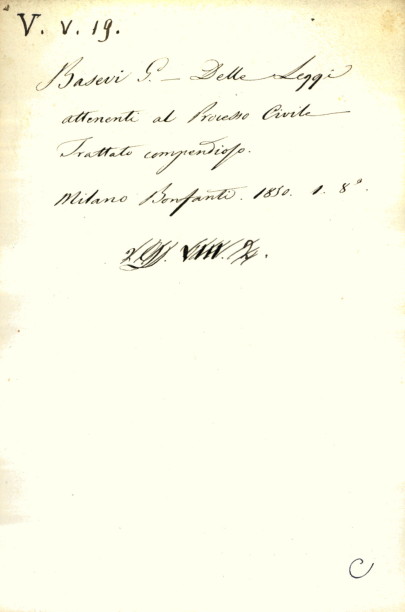 V. V. 19.
Basevi G. — Delle Leggi
attenenti al Processo Civile
Trattato compendioso.
Milano Bonfanti. 1850. 1. 8º.
VIII.
C